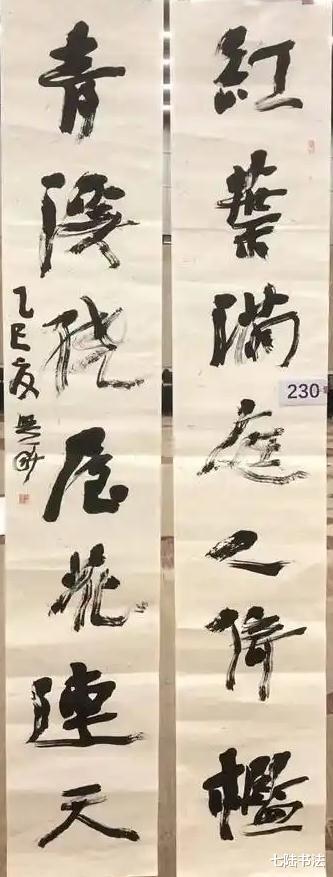 紅葉滿庭人倚檻
青溪繞屋花連天
乙巳夏
230
七陆书法